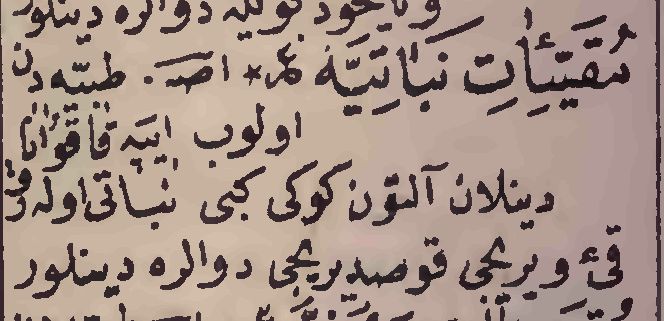 ویاخود بویله دوالره دینلور
مُقَيِّئَاتِ نَبَاتِيَّه ع * اصـ . طبیه دن
اولوب ایپه قاقوانا
دینلان آلتون کوکی کبی نباتی اوله رق
قیء ویریجی قوصدیریجی دوالره دینلور